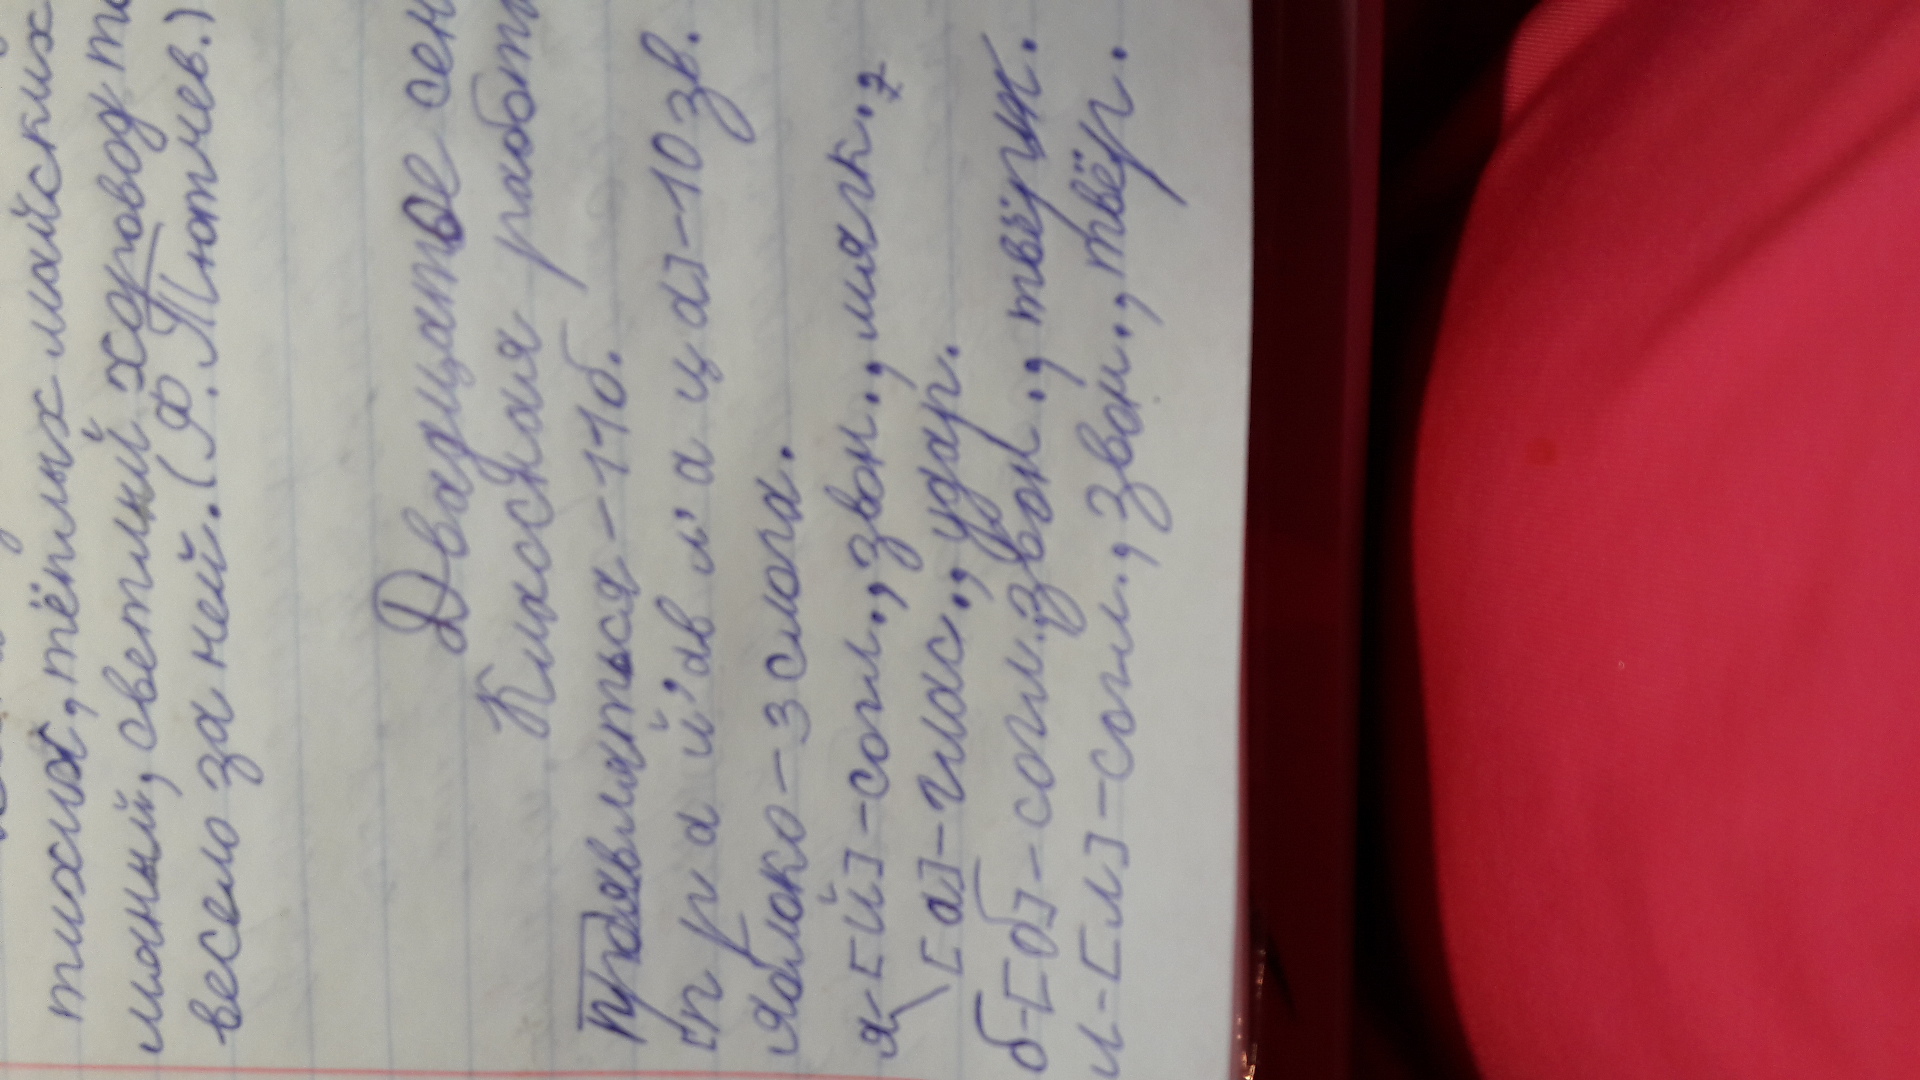 тихих, тёплых майских
маный, светлый хоровод
весело за ней. (Ф. Тютчев.)
Двадцатое сен
Классная работа
Проявляться - 11 б.
[п р а й' а в л' а ц а] - 10 зв.
яблоко - 3 слога.
я - [й] - согл., звон., мягк.,
[а] - глас., удар.
б - [б] - согл. звон., твёрт.
л - [л] - согл., звон., твёр.